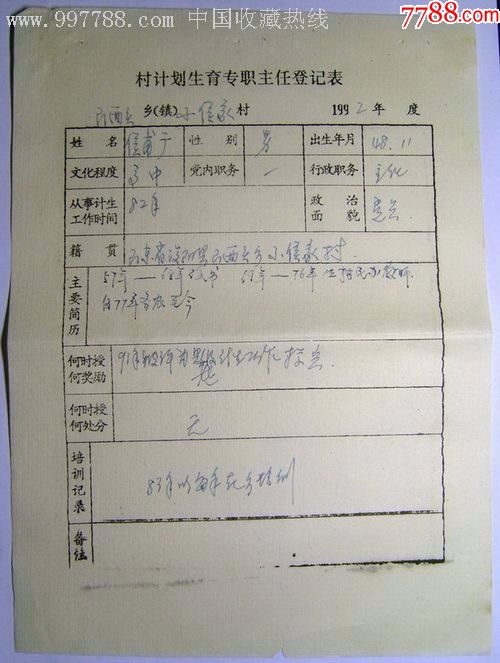 www.997788.com 中国收藏热线
7788.com
村计划生育专职主任登记表
乡(镇) 小侯家 村 1992年 度
姓 名 侯 性 别 男 出生年月 48.11
文化程度 高中 党内职务 一 行政职务 主任
从事计生工作时间 82年 政治面貌 党员
籍 贯 山东省 县 西 乡小侯家村
主要简历 57年—68年 68年—76年 任村民办教师
自77年 至今
何时授何奖励 91年被评为 计生工作
何时授何处分 无
培训记录 83年以 每年在乡培训
备注